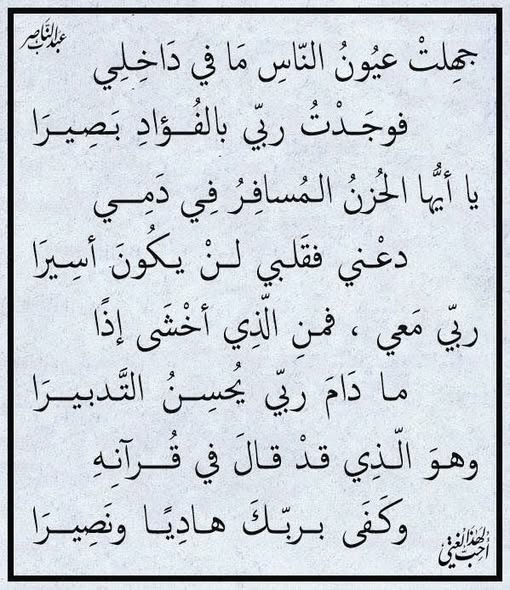 عبدالناصر
جهِلتْ عيُونُ النّاسِ مَا في دَاخِلِي
فوجَدْتُ ربّي بالفُؤادِ بَصِيرَا
يا أيُّها الحُزنُ المُسافِرُ فِي دَمِي
دعْني فقَلبي لنْ يكُونَ أسِيرَا
ربّي مَعي ، فمنِ الّذِي أخْشَى إذًا
ما دَامَ ربّي يُحسِنُ التَّدبيرَا
وهوَ الّذِي قدْ قالَ في قُرآنِهِ
وكَفَى بربّكَ هادِيًا ونَصِيرَا